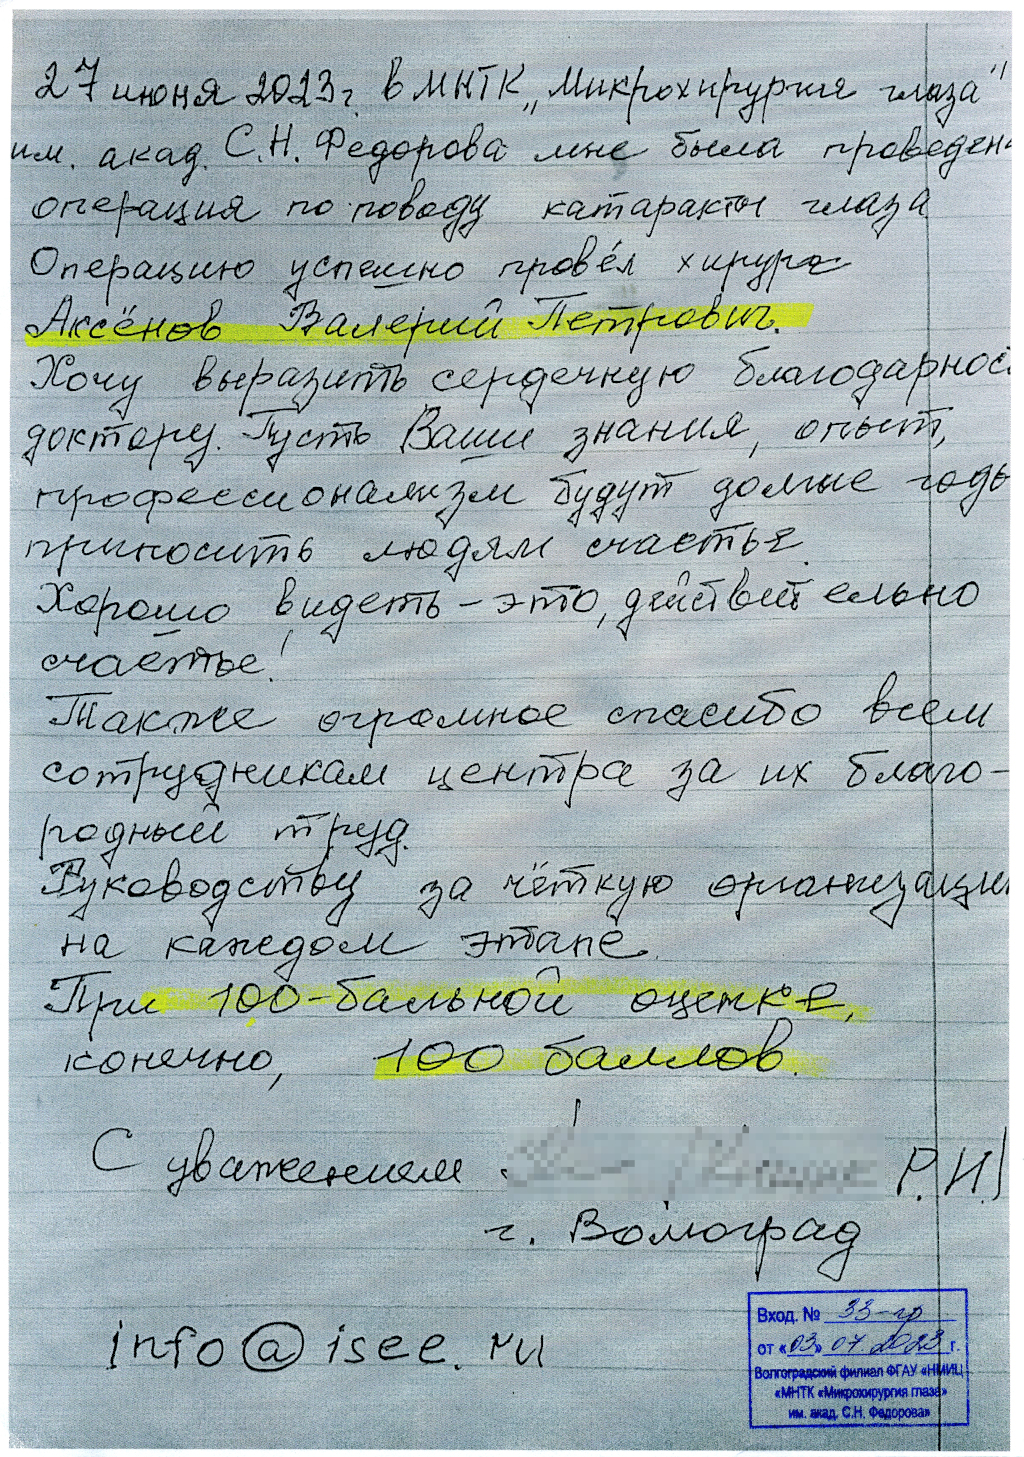 27 июня 2023г. в МНТК „Микрохирургия глаза"
им. акад. С.Н. Федорова мне была проведен
операция по поводу катаракты глаза
Операцию успешно провёл хирург
Аксёнов Валерий Петрович.
Хочу выразить сердечную благодарнос
доктору. Пусть Ваши знания, опыт,
профессионализм будут долгие годы
приносить людям счастье.
Хорошо видеть – это, действительно
счастье!
Также огромное спасибо всем
сотрудникам центра за их благо-
родный труд.
Руководству за чёткую организацию
на каждом этапе.
При 100-бальной оценке,
конечно, 100 баллов.
С уважением Р.И.
г. Волгоград
info@isee.ru
Вход. № 33-гр
от «03» 07 2023 г.
Волгоградский филиал ФГАУ «НМИЦ
«МНТК «Микрохирургия глаза»
им. акад. С.Н. Федорова»